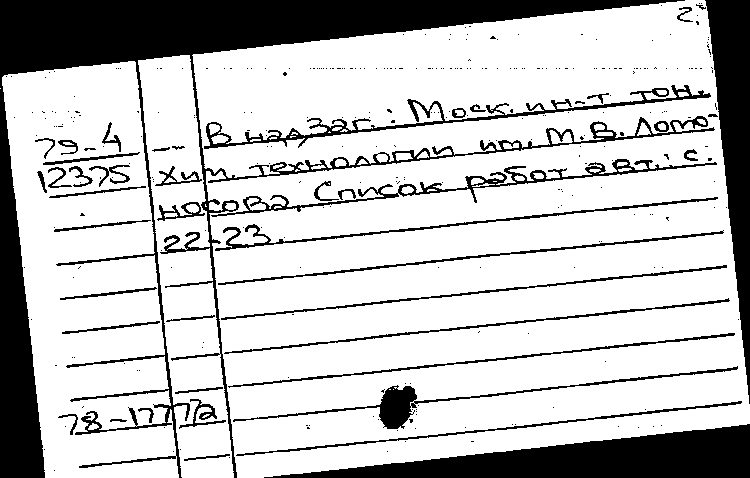 2.
79-4 -- В надзаг.: Моск. ин-т тон.
12375 хим. технологии им. М.В. Ломо-
носова. Список работ авт.: с.
22-23.
78-17772